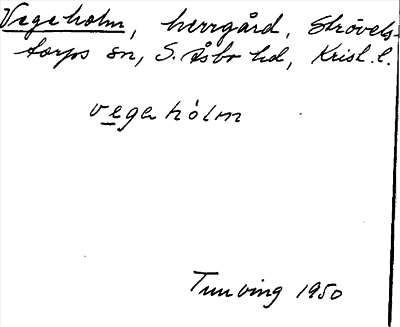 Vegeholm, herrgård, Strövels-
torps sn, S. Åsbo hd, Krist. l.
vegahólm
Tunving 1950